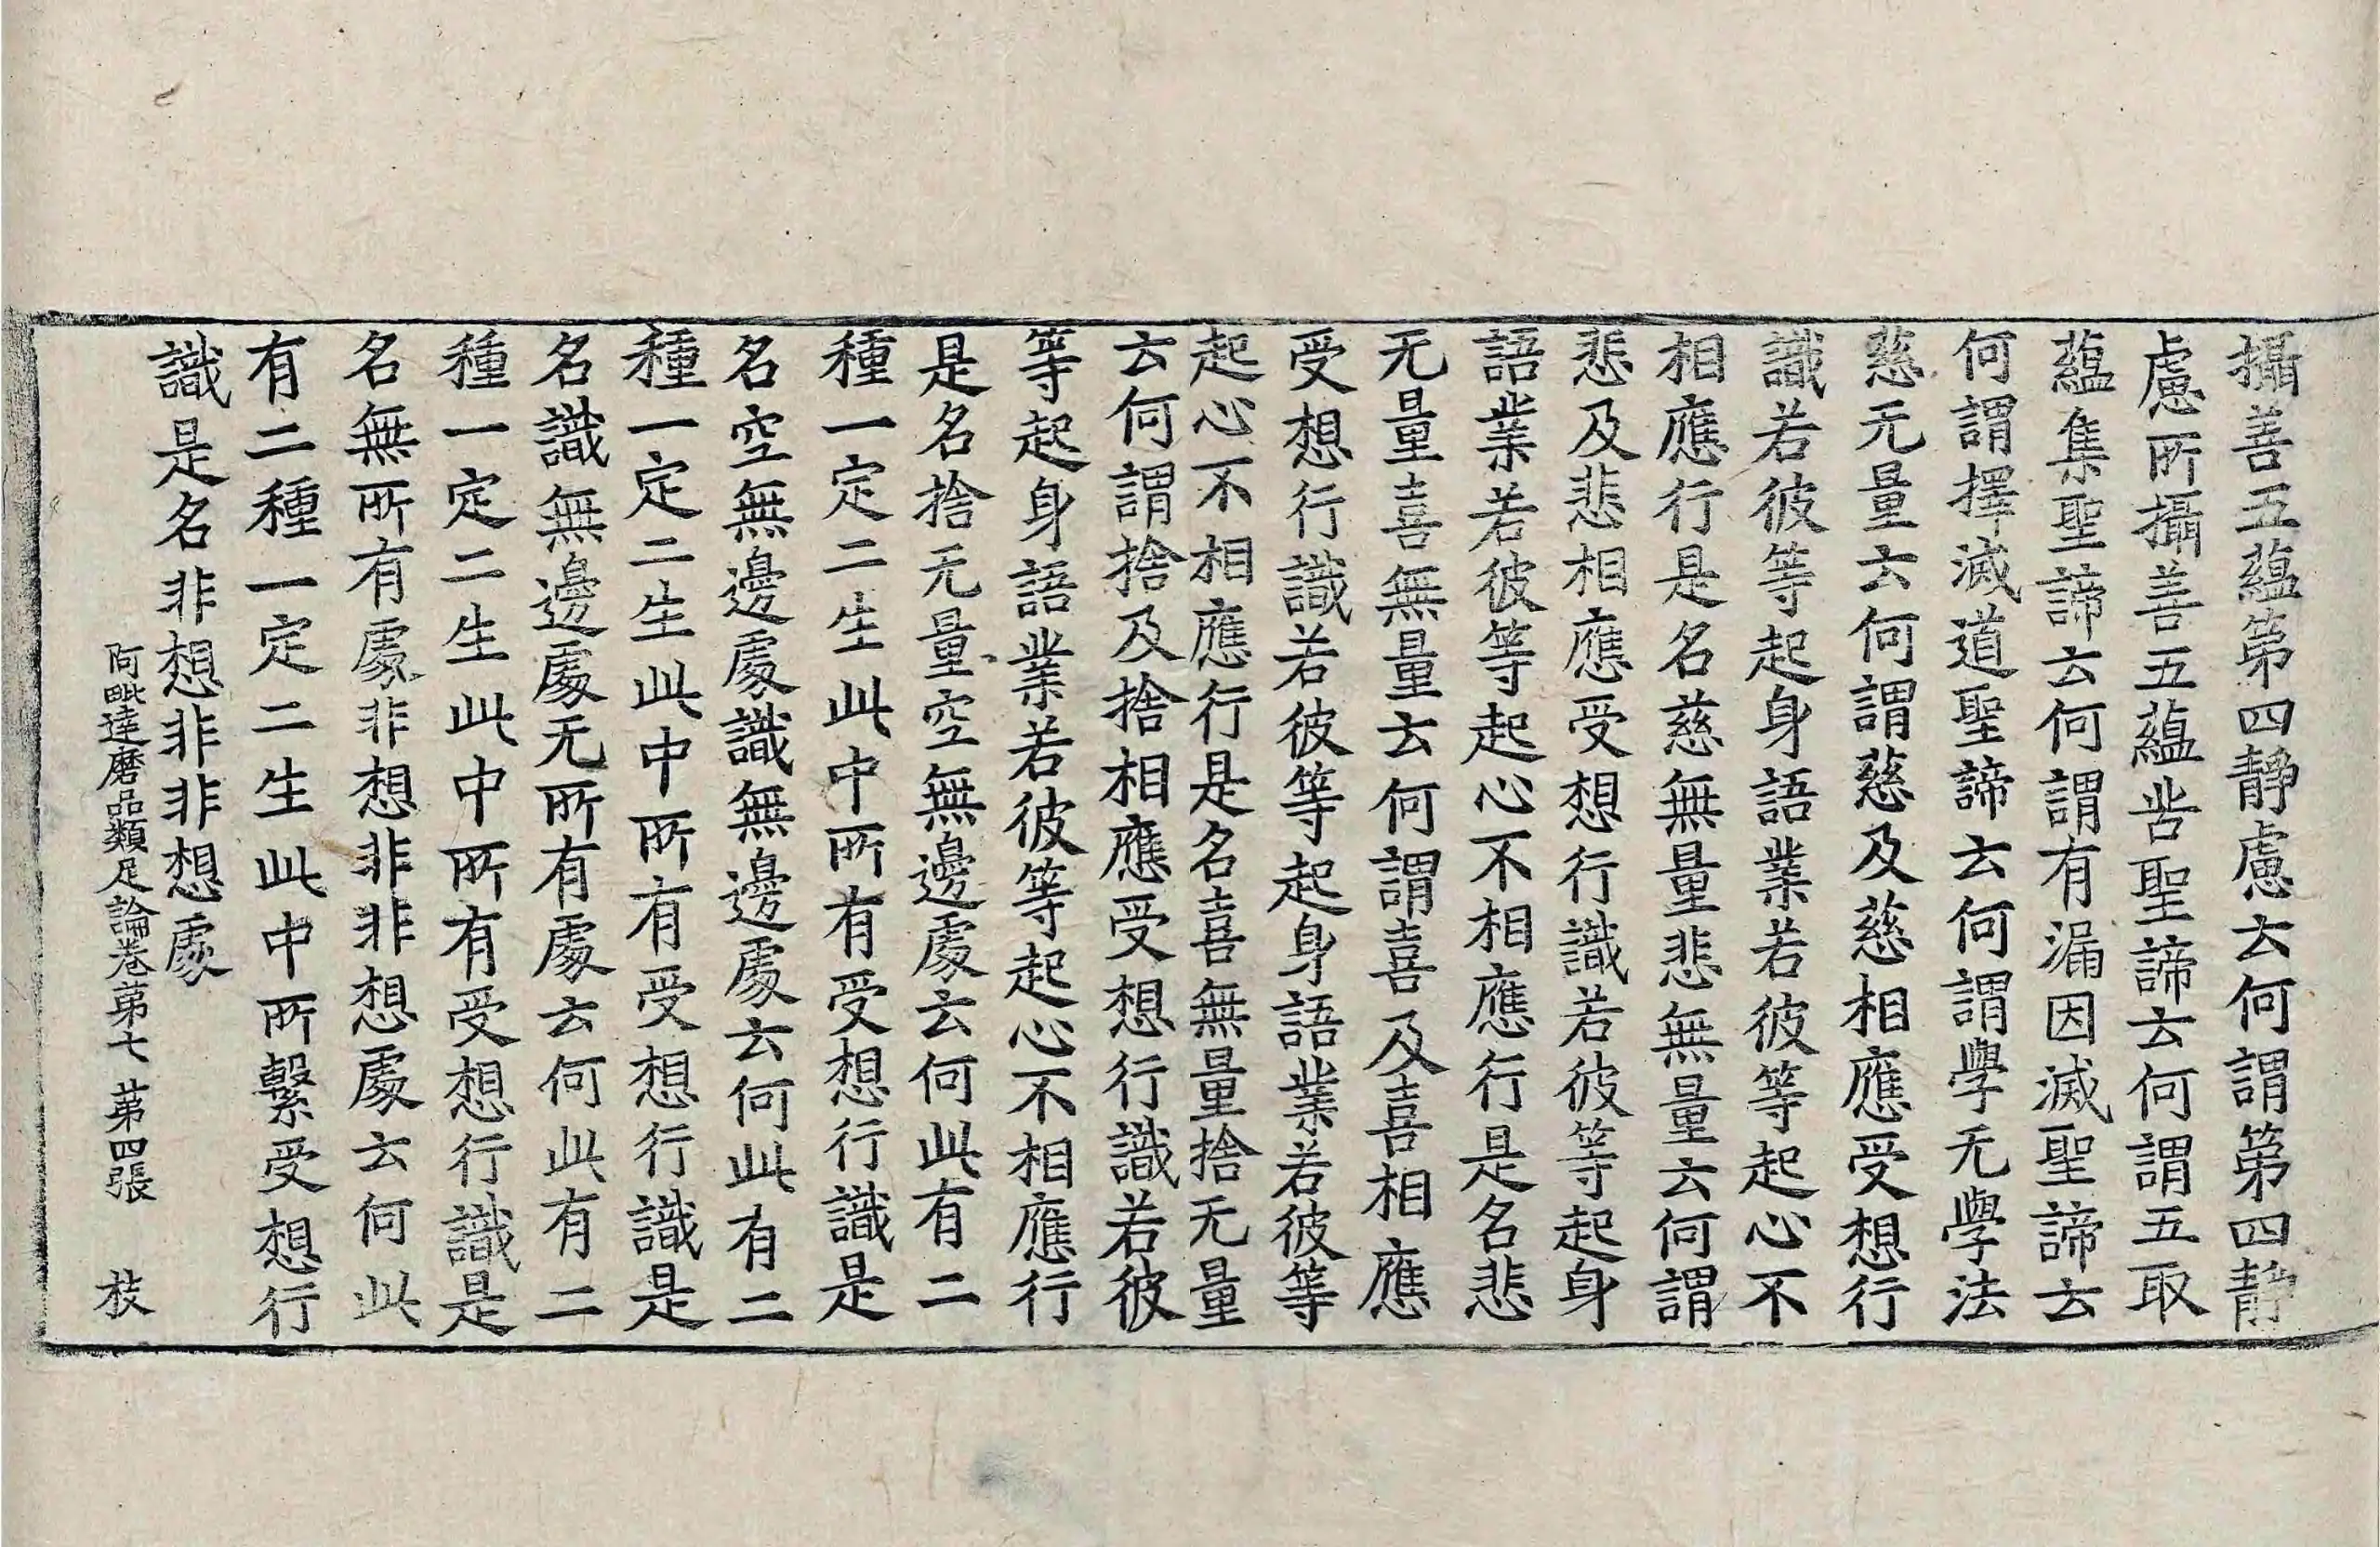 攝善五蘊第四靜慮云何謂第四靜
慮所攝善五蘊苦聖諦云何謂五取
蘊集聖諦云何謂有漏因滅聖諦云
何謂擇滅道聖諦云何謂學无學法
慈无量云何謂慈及慈相應受想行
識若彼等起身語業若彼等起心不
相應行是名慈無量悲無量云何謂
悲及悲相應受想行識若彼等起身
語業若彼等起心不相應行是名悲
无量喜無量云何謂喜及喜相應
受想行識若彼等起身語業若彼等
起心不相應行是名喜無量捨无量
云何謂捨及捨相應受想行識若彼
等起身語業若彼等起心不相應行
是名捨无量空無邊處云何此有二
種一定二生此中所有受想行識是
名空無邊處識無邊處云何此有二
種一定二生此中所有受想行識是
名識無邊處无所有處云何此有二
種一定二生此中所有受想行識是
名無所有處非想非非想處云何此
有二種一定二生此中所繫受想行
識是名非想非非想處
阿毗達磨品類足論卷第七 第四張 枝